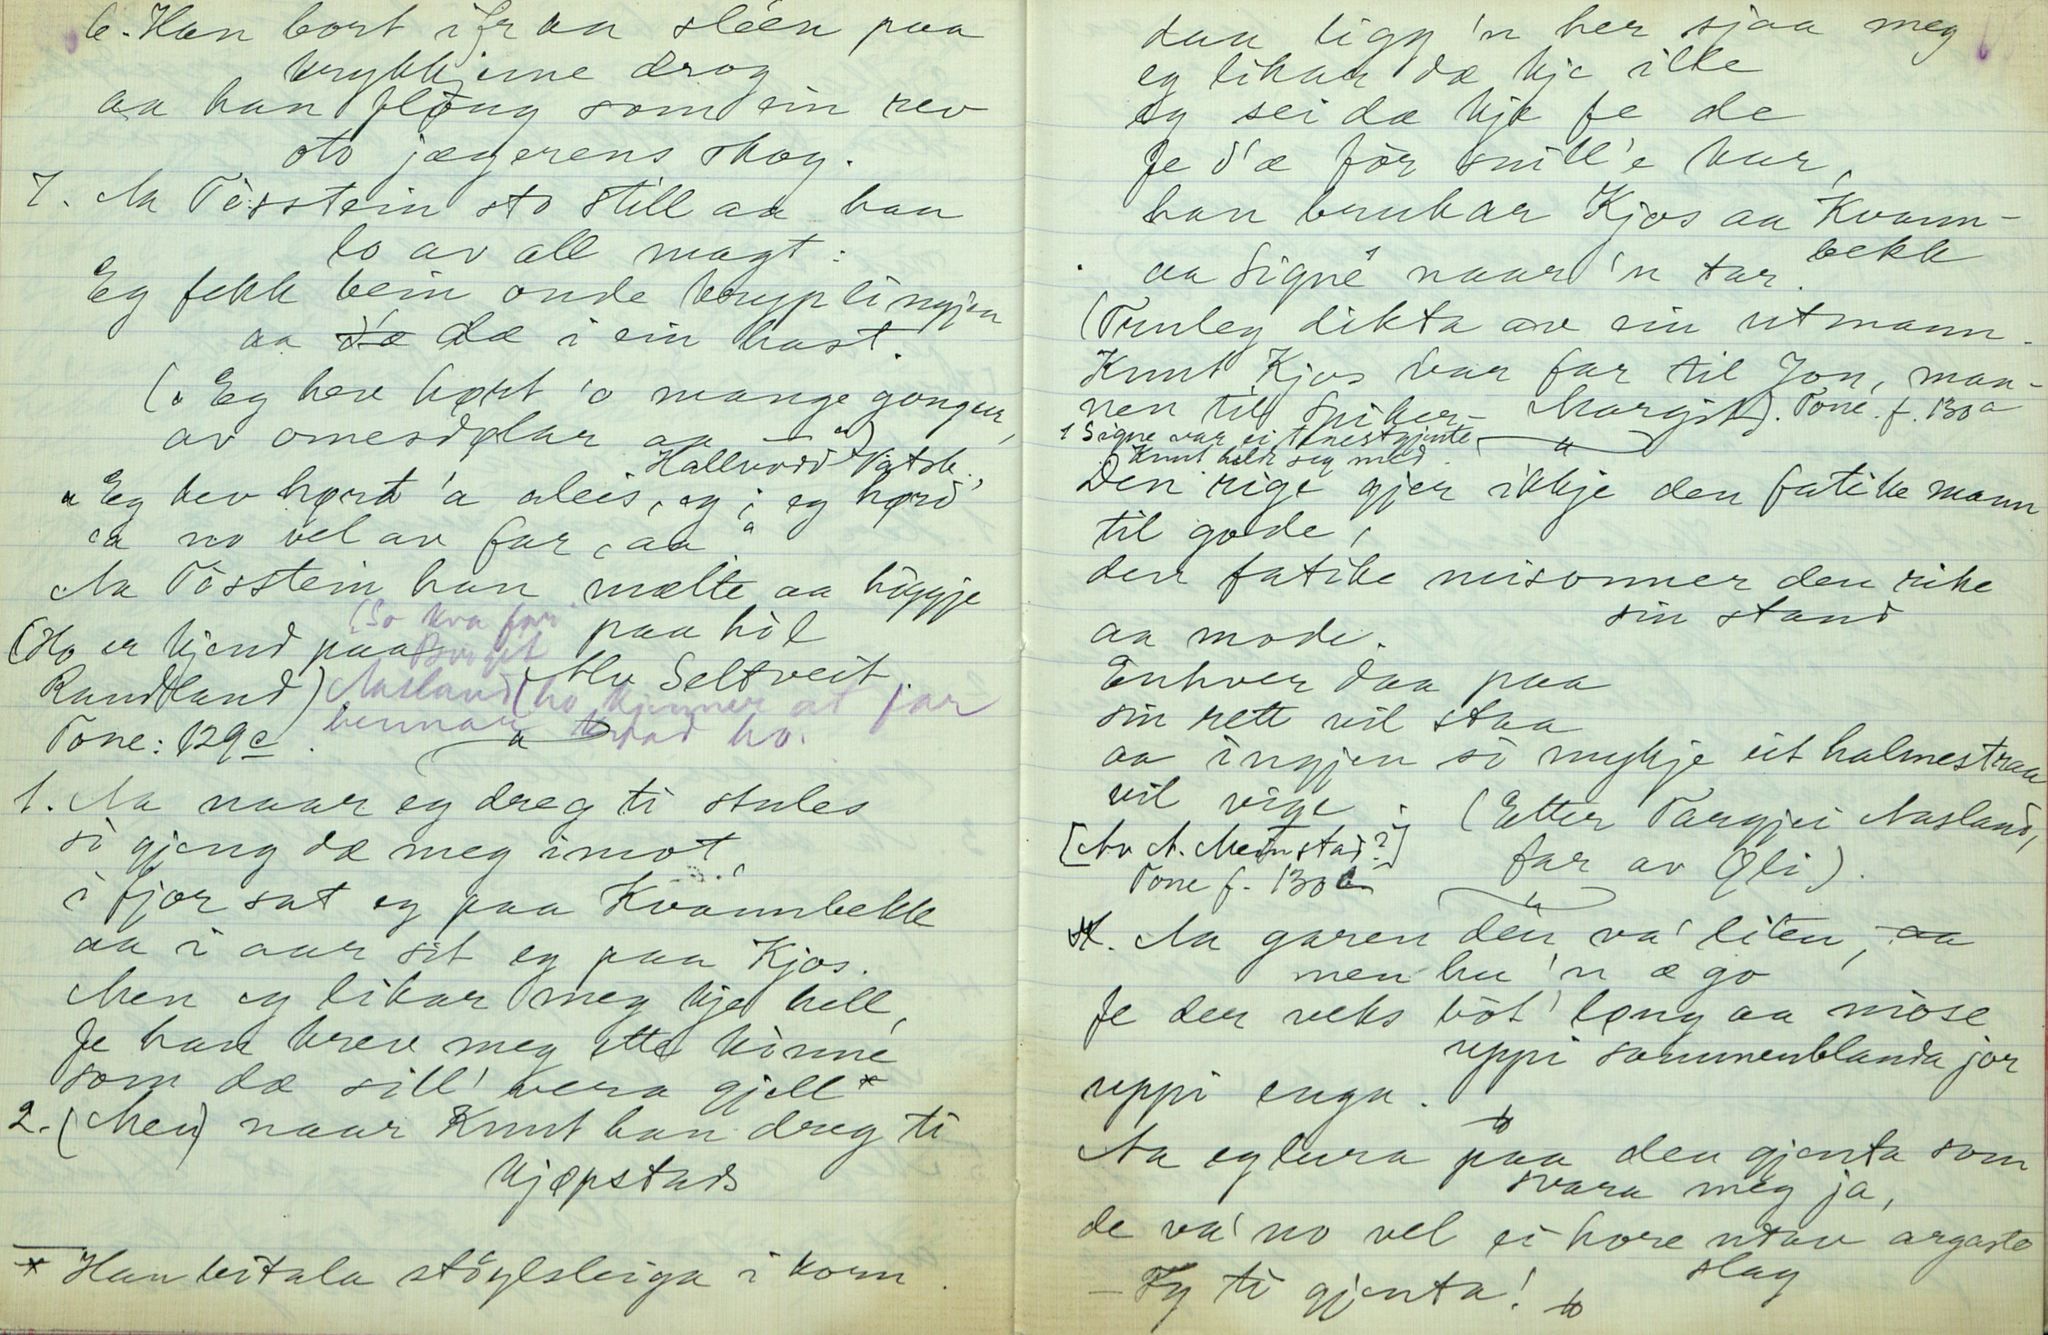 6. Han bort ifraa sléen paa
krykkjune drog
aa han fløug som ein rev
sto jægerens skog.
7. Aa Tòsstein sto still aa han
lo av all magt:
Eg fekk bein onde kryplingjen
aa dæ i ein hast.
("Eg heve hørt 'o mange gonger,
av omesdølar aa — ")
Hallvord Vatsh.
"Eg hev hørt 'a aleis, eg; eg hørd'
'a no vel av far, aa"
Aa Tòsstein han mælte aa høggje
paa hòl
(So kva far
(Ho er kjend paa
Birgit
Alv Seltveit.
Randtland)
Aasland (ho kjenner at far
hennar kvad ho.
Tone: 129c.
1. Aa naar eg dreg ti stules
sò gjeng dæ meg imot,
i fjor sat eg paa Kvannbekk
aa i aar sit eg paa Kjos.
Men eg likar meg kje hell,
fe han krev meg ette kònne
som dæ sill' vera gjell*
2. (Men) naar Knut han dreg ti
kjøpstads
* Han bitala stöylsleiga i korn.
daa ligg 'n her sjaa meg
eg likar dæ kje ille
eg sei dæ kje fe de
fe d'æ fòr snill'e kar,
han brukar Kjos aa Kvann-
bekk
aa Signe¹ naar 'n tar.
(Truleg dikta av ein utmann.
Knut Kjos var far til Jon, man-
nen til Spiker-Margit). Tone f. 130a
1 Signe var ei tenestgjente
Knut heldt seg med.
Den rige gjer ikkje den fatike mann
til gode,
den fatike misonner den rike
sin stand
aa mode.
Enhver daa paa
sin rett vil staa
aa ingjen sò mykje eit halmestraa
vil vige.
(Etter Targjei Aasland,
far av Øli).
[Av A. Meinstad?]
Tone f. 130b
Aa garen dèn va' liten,
men hu 'n æ go
fe der veks bòt' løng aa mòse
uppi sammenblanda jor
uppi enga.
Aa eg lura paa den gjenta som
svara meg ja,
de va' no vel ei hore utav argaste
slag
— Fy ti gjenta!